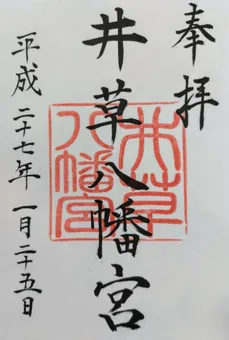 奉拝
井草八幡宮
平成二十七年一月二十五日
井草八幡宮